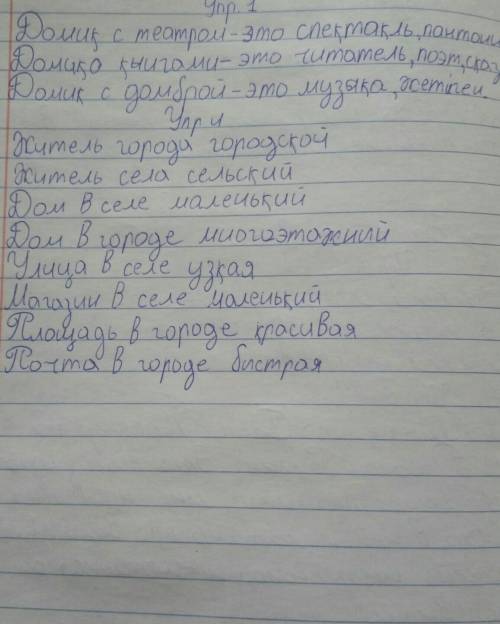 Упр. 1
Домик с театром-это спектакль, пантоми
Домиқа қыигами-это читатель, поэт, сказ
Домик с домброй-это музыка, жетіген.
Упр 4
Житель города городской
Житель села сельский
Дом в селе маленький
Дом в городе многоэтажний
Улица в селе узкая
Магазин в селе маленький
Площадь в городе красивая
Почта в городе бистрая